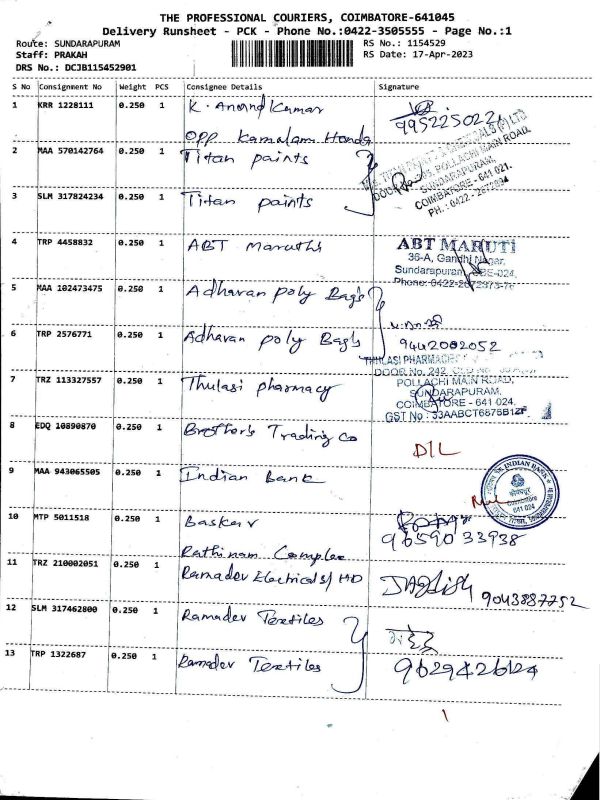 THE PROFESSIONAL COURIERS, COIMBATORE-641045
Delivery Runsheet - PCK - Phone No.:0422-3505555 - Page No.:1
Route: SUNDARAPURAM RS No.: 1154529
Staff: PRAKAH RS Date: 17-Apr-2023
DRS No.: DCJB115452901
S No Consignment No Weight PCS Consignee Details Signature
1 KRR 1228111 0.250 1 K. Anand Kumar
9952250221
OPP Kamalam Honda
2 MAA 570142764 0.250 1 Titan paints
POLLACHI MAIN ROAD,
SUNDARAPURAM,
COIMBATORE - 641 021.
3 SLM 317824234 0.250 1 Titan paints
PH.: 0422 - 2672894
4 TRP 4458832 0.250 1 ABT Maruthi
ABT MARUTI
36-A, Gandhi Nagar,
Sundarapuram,
5 MAA 102473475 0.250 1 Adhavan poly Bags
6 TRP 2576771 0.250 1 Adhavan poly Bags
9442002052
THULASI PHARMACY
DOOR No. 242,
7 TRZ 113327557 0.250 1 Thulasi pharmacy
POLLACHI MAIN ROAD,
SUNDARAPURAM,
COIMBATORE - 641 024.
GST No : 33AABCT6876B1ZF
8 EDQ 10890870 0.250 1 Brothers Trading Co
D/L
9 MAA 943065505 0.250 1 Indian Bank
INDIAN BANK
Coimbatore
641 024
10 MTP 5011518 0.250 1 Baskar
9659033938
Rathinam Complex
11 TRZ 210002051 0.250 1 Ramadev Electricals/ HD
Jagdish 9043887752
12 SLM 317462800 0.250 1 Ramadev Textiles
13 TRP 1322687 0.250 1 Ramadev Textiles
9629426124